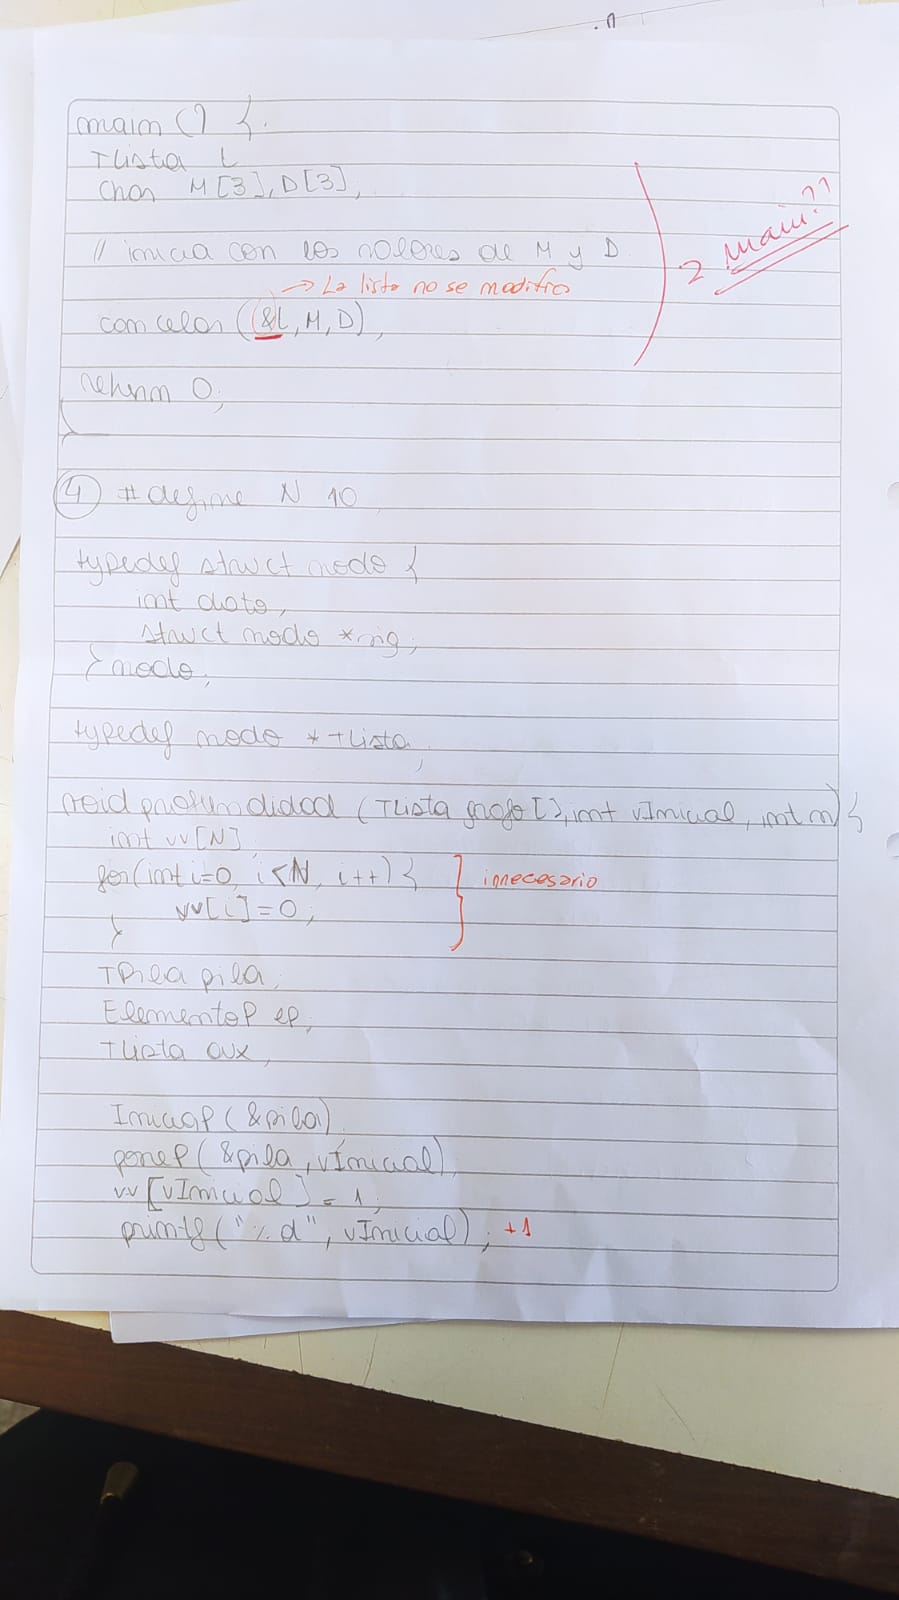 main () {
TLista L
char M[3], D[3],
// inicia con los valores de M y D
→ La lista no se modifica
2 main??
cancelar (&L, M, D),
return 0;
}
4 #define N 10
typedef struct nodo {
int dato,
struct nodo *sig;
} nodo;
typedef nodo *TLista,
void profundidad (TLista grafo[], int vInicial, int n) {
int vv[N]
for(int i=0, i<N, i++) {
innecesario
vv[i]=0;
}
TPila pila,
ElementoP ep,
TLista aux,
IniciaP (&pila)
poneP (&pila, vInicial)
vv [vInicial] = 1;
printf ("%d", vInicial); +1